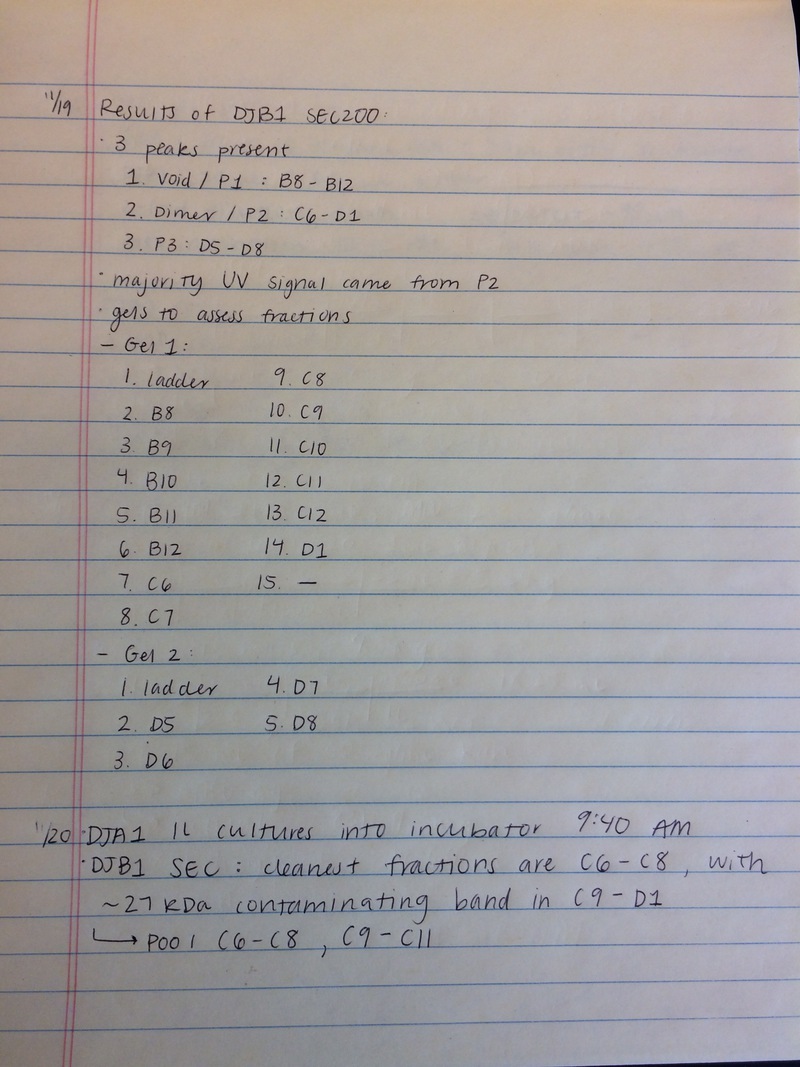 11/19 Results of DJB1 SEC200:
· 3 peaks present
1. Void / P1 : B8 - B12
2. Dimer / P2 : C6 - D1
3. P3 : D5 - D8
· majority UV signal came from P2
· gels to assess fractions
- Gel 1:
1. ladder 9. C8
2. B8 10. C9
3. B9 11. C10
4. B10 12. C11
5. B11 13. C12
6. B12 14. D1
7. C6 15. —
8. C7
- Gel 2 :
1. ladder 4. D7
2. D5 5. D8
3. D6
11/20 · DJA1 1L cultures into incubator 9:40 AM
· DJB1 SEC : cleanest fractions are C6 - C8 , with
~27 kDa contaminating band in C9 - D1
↳ pool C6 - C8 , C9 - C11